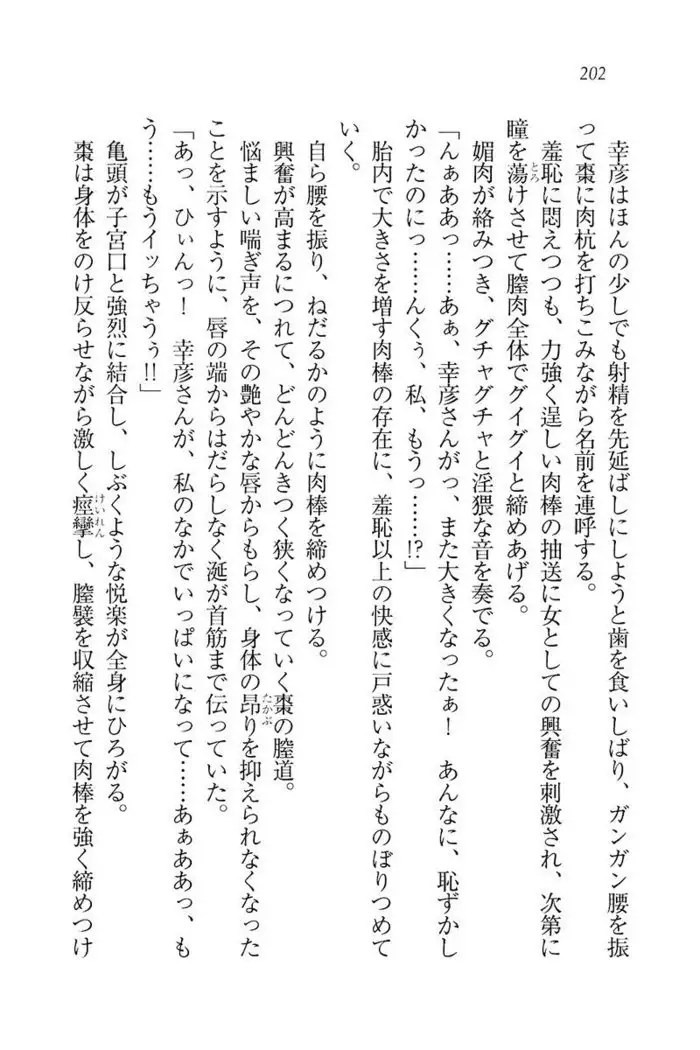 202
幸彦はほんの少しでも射精を先延ばしにしようと歯を食いしばり、ガンガン腰を振
って棗に肉杭を打ちこみながら名前を連呼する。
羞恥に悶えつつも、力強く逞しい肉棒の抽送に女としての興奮を刺激され、次第に
瞳を蕩とろけさせて膣肉全体でグイグイと締めあげる。
媚肉が絡みつき、グチャグチャと淫猥な音を奏でる。
「んぁああっ……あぁ、幸彦さんがっ、また大きくなったぁ！　あんなに、恥ずかし
かったのにっ……んくぅ、私、もうっ……!?」
胎内で大きさを増す肉棒の存在に、羞恥以上の快感に戸惑いながらものぼりつめて
いく。
自ら腰を振り、ねだるかのように肉棒を締めつける。
興奮が高まるにつれて、どんどんきつく狭くなっていく棗の膣道。
悩ましい喘ぎ声を、その艶やかな唇からもらし、身体の昂たかぶりを抑えられなくなった
ことを示すように、唇の端からはだらしなく涎が首筋まで伝っていた。
「あっ、ひぃんっ！　幸彦さんが、私のなかでいっぱいになって……あぁああっ、も
う……もうイッちゃうぅ!!」
亀頭が子宮口と強烈に結合し、しぶくような悦楽が全身にひろがる。
棗は身体をのけ反らせながら激しく痙攣けいれんし、膣襞を収縮させて肉棒を強く締めつけ